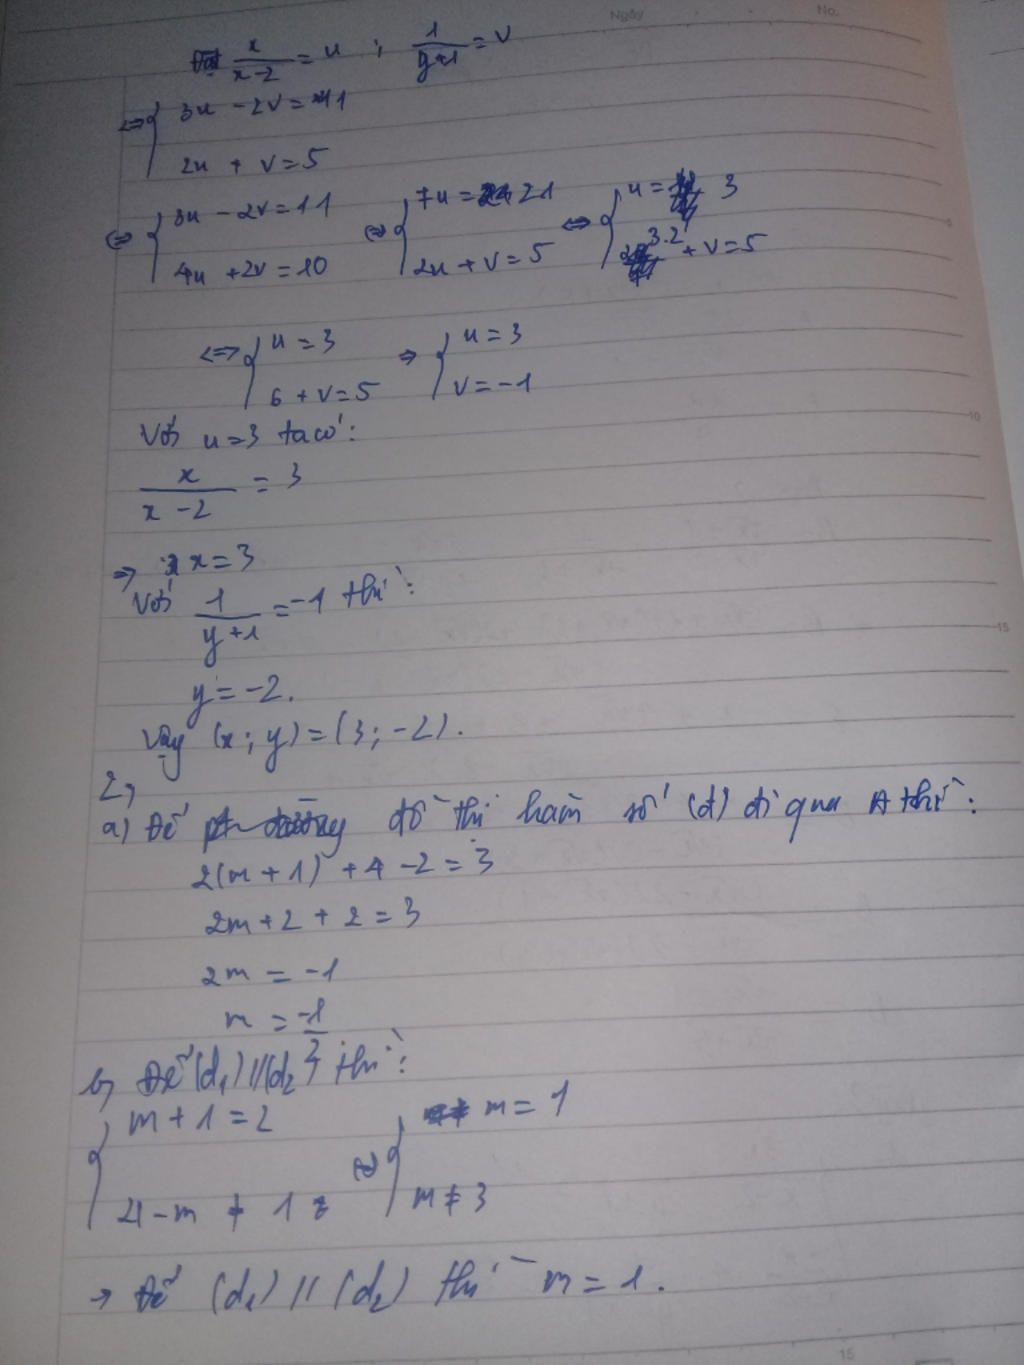 Ngày No.
Đặt x/(x-2) = u ; 1/(y+1) = v
<=> { 3u - 2v = 11
2u + v = 5
<=> { 3u - 2v = 11 <=> { 7u = 21 <=> { u = 3
4u + 2v = 10 2u + v = 5 3.2 + v = 5
<=> { u = 3 => { u = 3
6 + v = 5 v = -1
Với u = 3 ta có:
x/(x - 2) = 3
=> x = 3
Với 1/(y+1) = -1 thì:
y = -2.
Vậy (x; y) = (3; -2).
2,
a) Để đồ thị hàm số (d) đi qua A thì:
2(m + 1) + 4 - 2 = 3
2m + 2 + 2 = 3
2m = -1
m = -1/2
b, Để (d₁) // (d₂) thì:
{ m + 1 = 2 <=> { m = 1
4 - m ≠ 1 m ≠ 3
→ Để (d₁) // (d₂) thì m = 1.
10
15
15